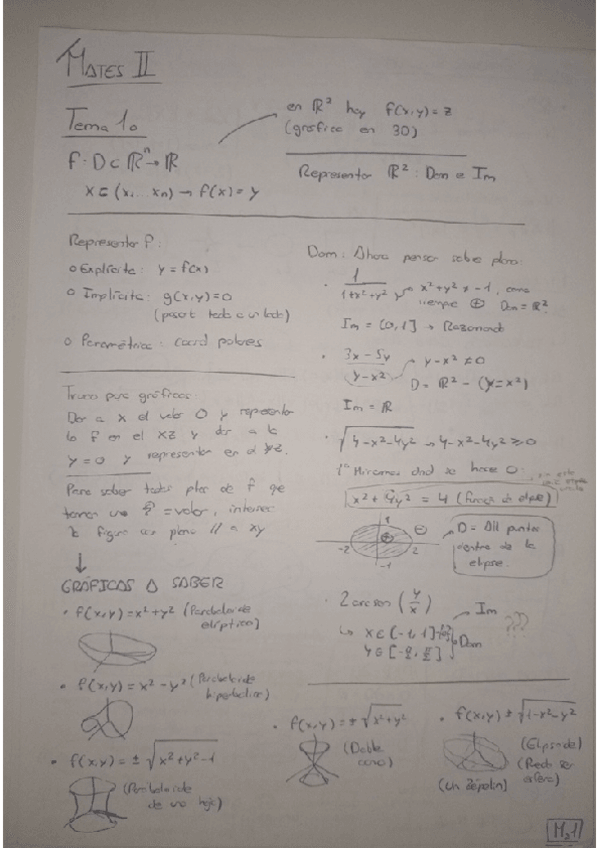 MATES II
Tema 1.
f: D ⊂ ℝⁿ → ℝ
x ∈ (x₁ ... xₙ) → f(x) = y
en ℝ² hay f(x,y) = z
(gráfica en 3D)
Representar ℝ²: Dom e Im
Representar f:
o Explícita: y = f(x)
o Implícita: g(x,y) = 0
(pasar todo a un lado)
o Paramétrica: coord polares
Truco para gráficas:
Dar a x el valor 0 y representar
la f en el XZ y dar a la
y = 0 y representar en el YZ.
Para saber todos
tomar un = valor,
la figura con plano // a xy
↓
GRÁFICAS A SABER
• f(x,y) = x² + y² (Paraboloide
elíptico)
• f(x,y) = x² - y² (Paraboloide
hiperbólico)
• f(x,y) = ± √(x² + y² - 1)
(Paraboloide
de una hoja)
Dom: Ahora pensar sobre plano:
• 1/(1+x²+y²) → x² + y² ≠ -1, como
siempre ⊕ Dom = ℝ²
Im = (0,1] → Razonado
• (3x - 5y)/(y - x²) → y - x² ≠ 0
D = ℝ² - (y = x²)
Im = ℝ
• √(4-x²-4y²) → 4-x²-4y² ≥ 0
1º Miramos cuando se hace 0:
x² + 4y² = 4 (forma de elipse)
-2 1 ⊕ 2 -1 ⊖
D = All puntos
dentro de la
elipse.
• 2 arcsen (y/x) → Im
↳ x ∈ [-1, 1]
y ∈ Dom ???
• f(x,y) = ± √(x² + y²)
(Doble
cono)
• f(x,y) ± √(1-x²-y²)
(Elipsoide)
(Puede ser
esfera)
(Un zépelin)
M.1